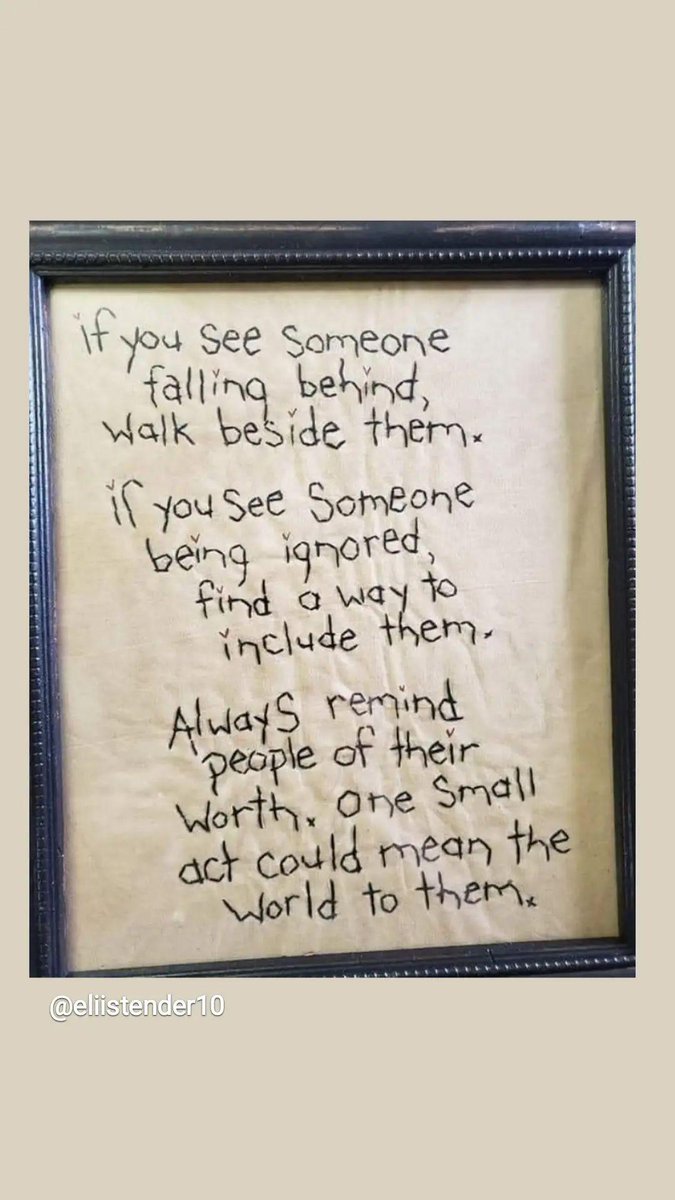 if you see someone
falling behind,
walk beside them.
if you see someone
being ignored,
find a way to
include them.
Always remind
people of their
worth. one small
act could mean the
world to them.
@eliistender10